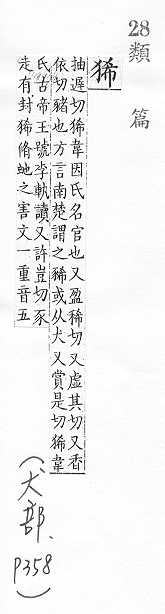 28
類
篇
狶
抽遲切狶韋因氏名官也又盈狶切又虛其切又香
依切豬也方言南楚謂之狶或从犬又賞是切狶韋
氏古帝王號李軌讀又許豈切豕
走有封狶脩虵之害文一重音五
(犬部.
P358)